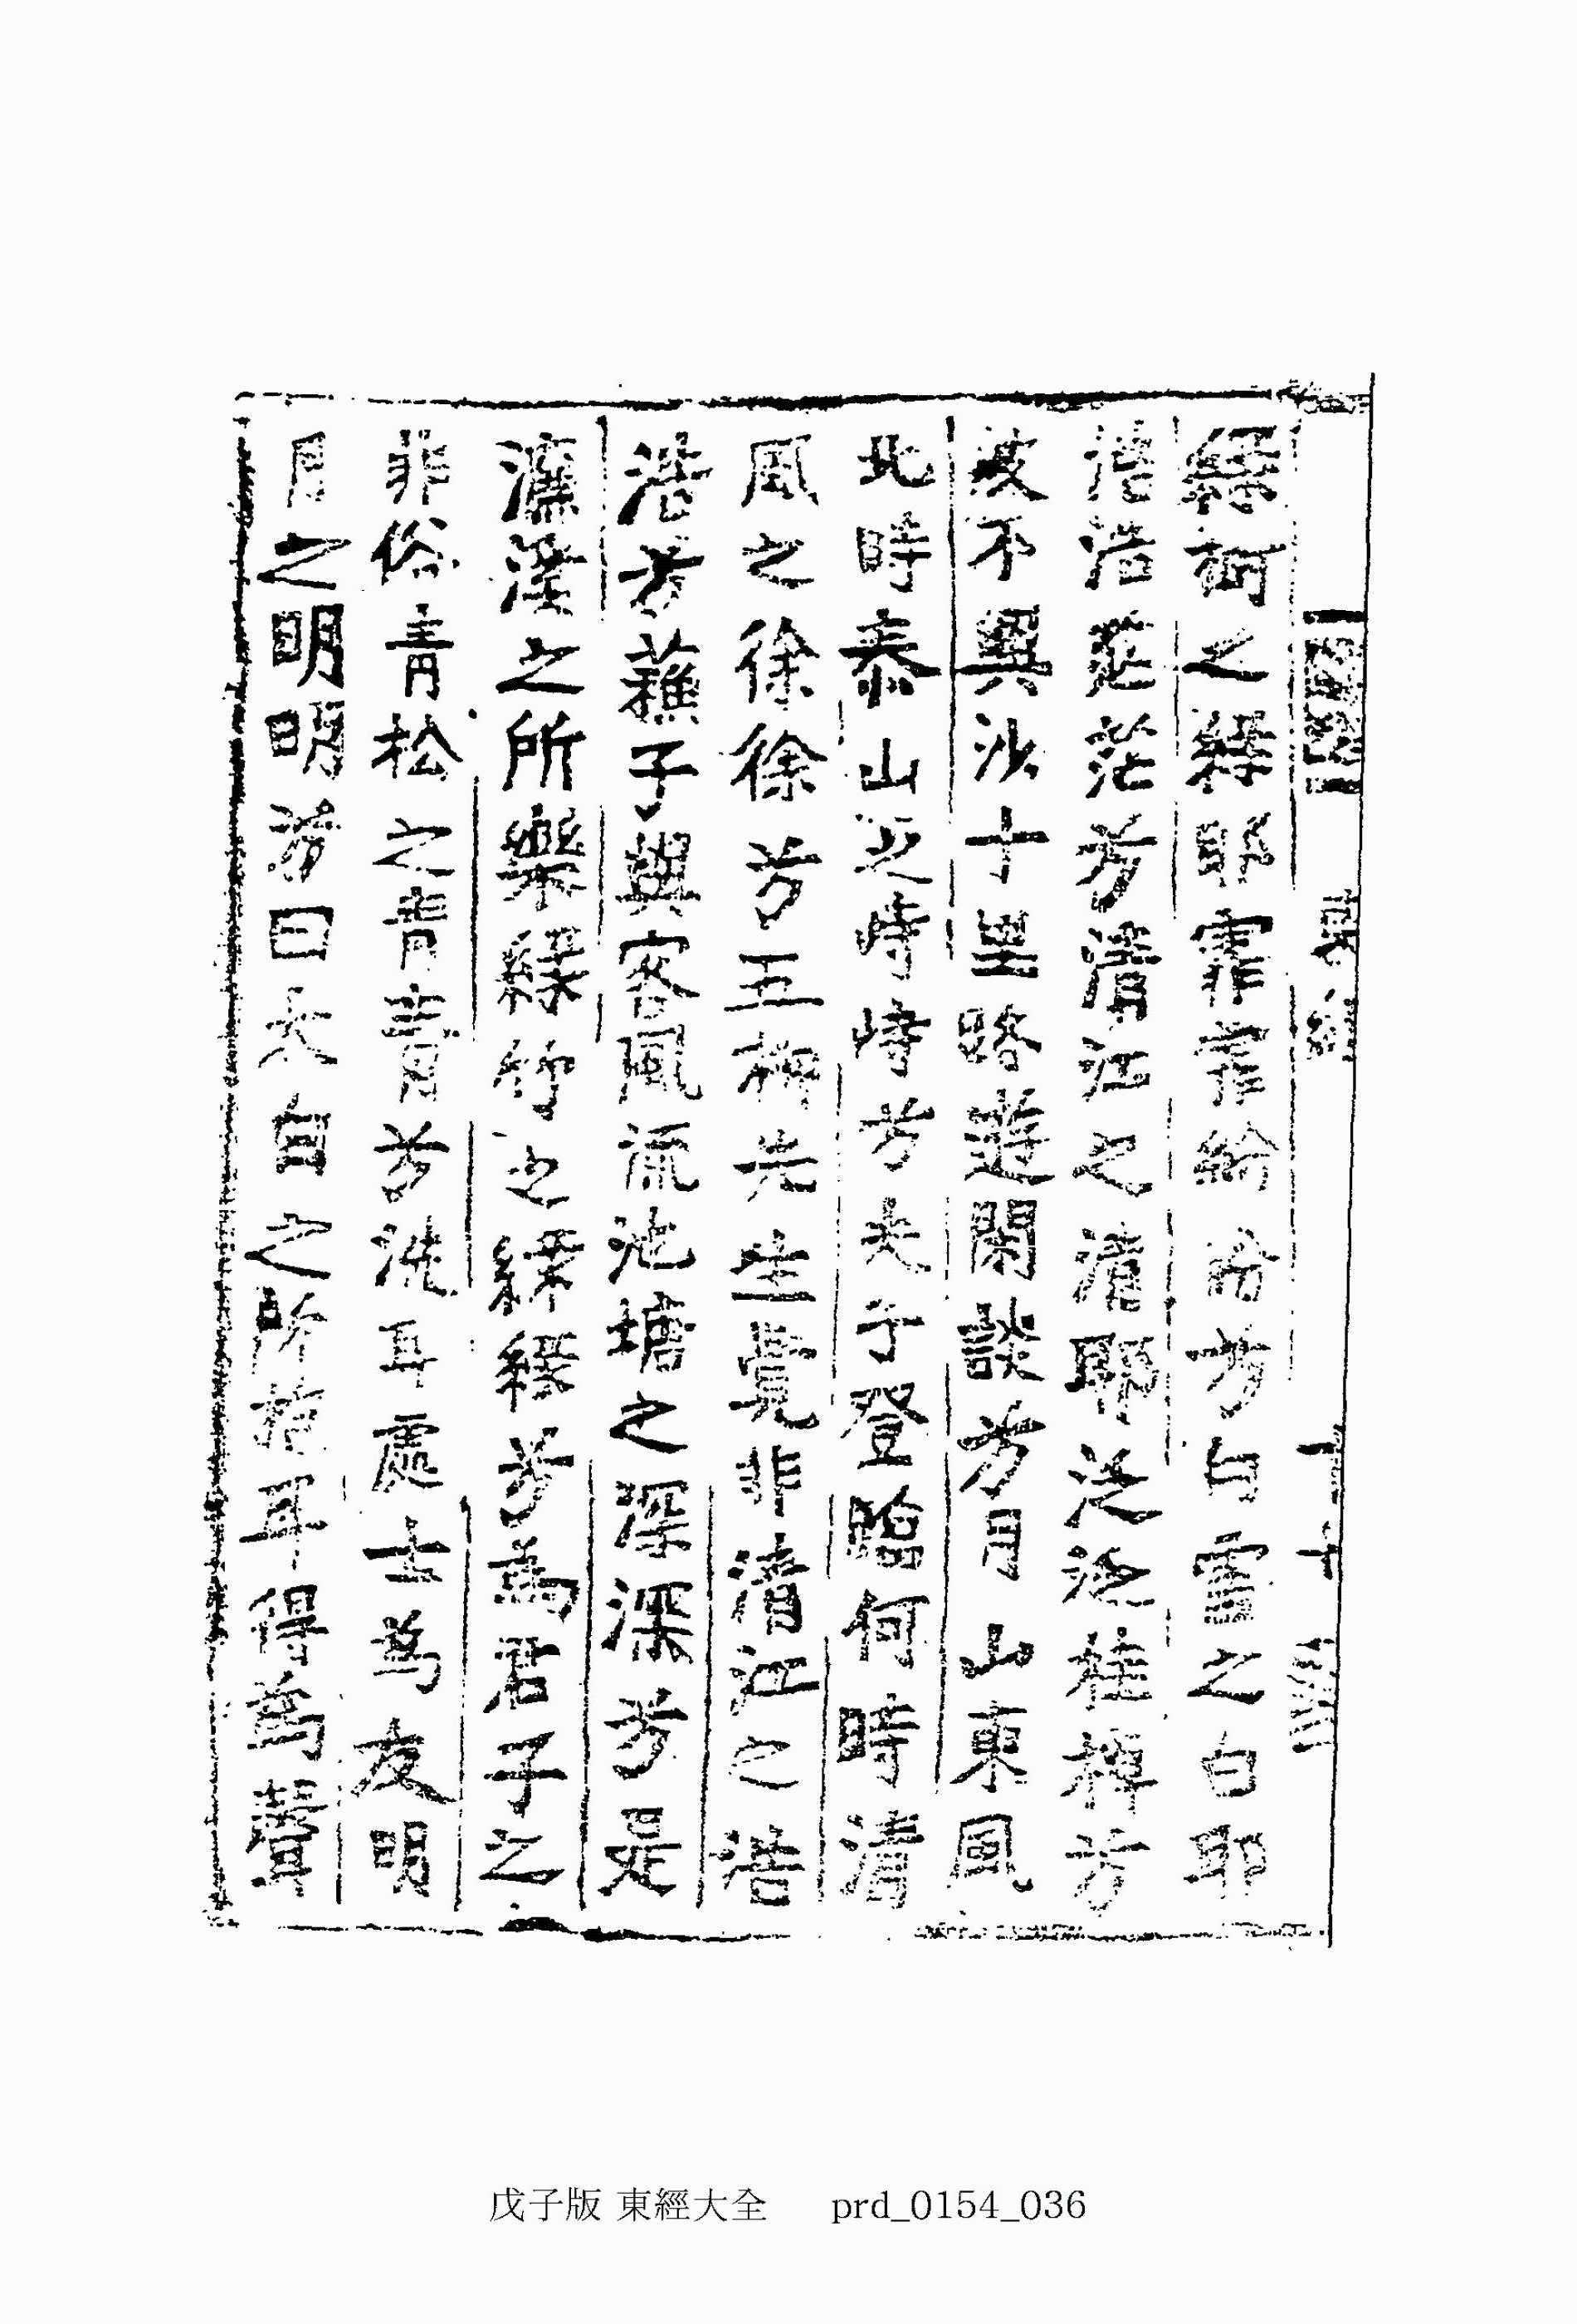 綠樹之綠耶霏霏紛紛兮白雪之白耶
浩浩茫茫兮淸江之淸耶泛泛桂棹兮
波不興沙十里路遊閑談兮月山東風
北時泰山之峙峙兮夫子登臨何時淸
風之徐徐兮五柳先生覺非淸江之浩
浩兮蘇子與客風流池塘之深深兮是
濂溪之所樂綠竹之綠綠兮爲君子之
非俗靑松之靑靑兮洗耳處士爲友明
月之明明兮曰太白之所抱耳得爲聲
戊子版 東經大全 prd_0154_036